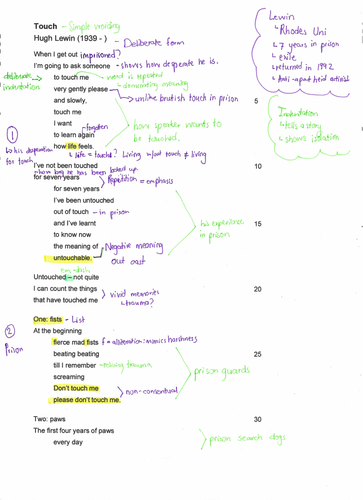 Touch - Simple wording
Hugh Lewin (1939 - ) - Deliberate form
When I get out imprisoned?
I'm going to ask someone - shows how desperate he is.
to touch me - word is repeated
- demanding meaning
very gently please
and slowly, unlike brutish touch in prison 5
touch me
I want
to learn again forgotten
how life feels. how speaker wants to be touched.
life = touched? Living without touch ≠ living
I've not been touched 10
how long he has been locked up
for seven years Repetition = emphasis
for seven years
I've been untouched
out of touch - in prison
and I've learnt his experience in prison 15
to know now
the meaning of Negative meaning
untouchable. Out cast
em-dash
Untouched – not quite
I can count the things vivid memories 20
that have touched me - trauma?
One: fists - List
At the beginning
fierce mad fists f = aliteration: mimics harshness
beating beating 25
till I remember
screaming prison guards
Don't touch me
please don't touch me. non-consentual
Two: paws 30
The first four years of paws prison search dogs
every day
deliberate indentation
1
his desperation for touch
2
Prison
Lewin
Rhodes Uni
7 years in prison
exile
returned in 1992
Anti-apartheid activist
Indentation
tells a story
shows isolation